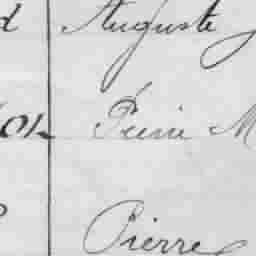 d Auguste
Pierre M
Pierre